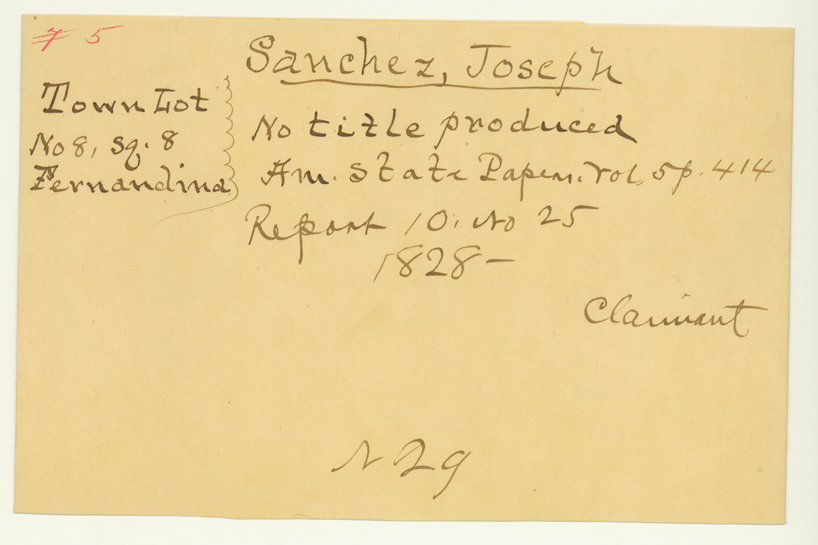 7 5
Sanchez, Joseph
Town Lot
No 8, Sq. 8
Fernandina
No title produced
Am. State Papers. Vol. 5 p. 414
Report 10. No 25
1828-
Claimant
N 29